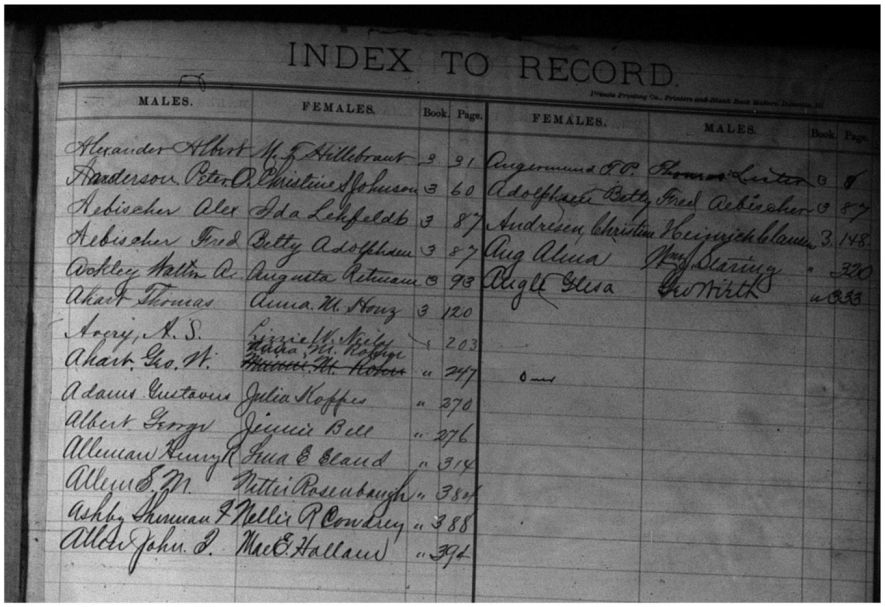 INDEX TO RECORD.
Printing Co., Printers and Blank Book Makers,
MALES. FEMALES. Book. Page. FEMALES. MALES. Book. Page.
Alexander Albert M. F. Hillebrant 3 31 Angermund F. P. Thomas 3
Anderson Peter O. Christine S Johnson 3 60 Adolphsen Betty Fred Aebischer 3 87
Aebischer Alex Ida Lehfeldt 3 87 Andrisen, Christine Heinrich Clausen 3 148
Aebischer Fred Betty Adolphsen 3 87 Aug Alma Wm Dearing " 320
Ackley Walter A. Augusta 3 93 Glesa Geo Wirth " 333
Ahart Thomas Anna. M. 3 120
Avery, A. S. Lizzie W. " 203
Ahart. Geo. W. M. " 247
Adams Gustavus Julia Koppes " 270
Albert George Jennie Bell " 276
Alleman Henry R Ima E Eland " 314
Allen E. M. Nettie Rosenbaugh " 384
Ashby Sherman F Nellie R Cowdrey " 388
Allen John. F. Mae E. Hallam " 394